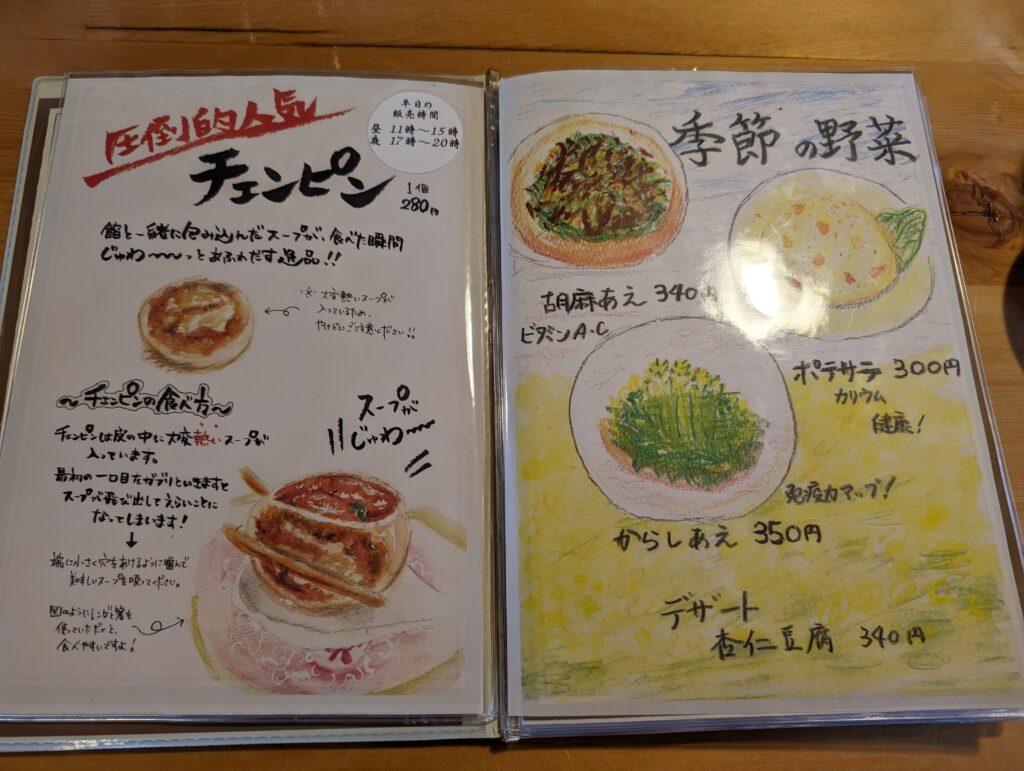 圧倒的人気
チェンピン
1個
280円
平日の
販売時間
昼 11時〜15時
夜 17時〜20時
餡と一緒に包み込んだスープが、食べた瞬間
じゅわ〜〜っとあふれだす逸品!!
※大変熱いスープが
入っているため、
やけどにご注意ください!!
〜チェンピンの食べ方〜
チェンピンは皮の中に大変熱いスープが
入っています。
最初の一口目をガブリといきますと
スープが飛び出してえらいことに
なってしまいます!
↓
端に小さく穴をあけるように噛んで
美味しいスープを吸ってください。
図のようにレンゲと箸を
使っていただくと、
食べやすいですよ!
スープが
じゅわ〜
季節の野菜
胡麻あえ 340円
ビタミンA・C
ポテサラ 300円
カリウム
健康!
免疫力アップ!
からしあえ 350円
デザート
杏仁豆腐 340円